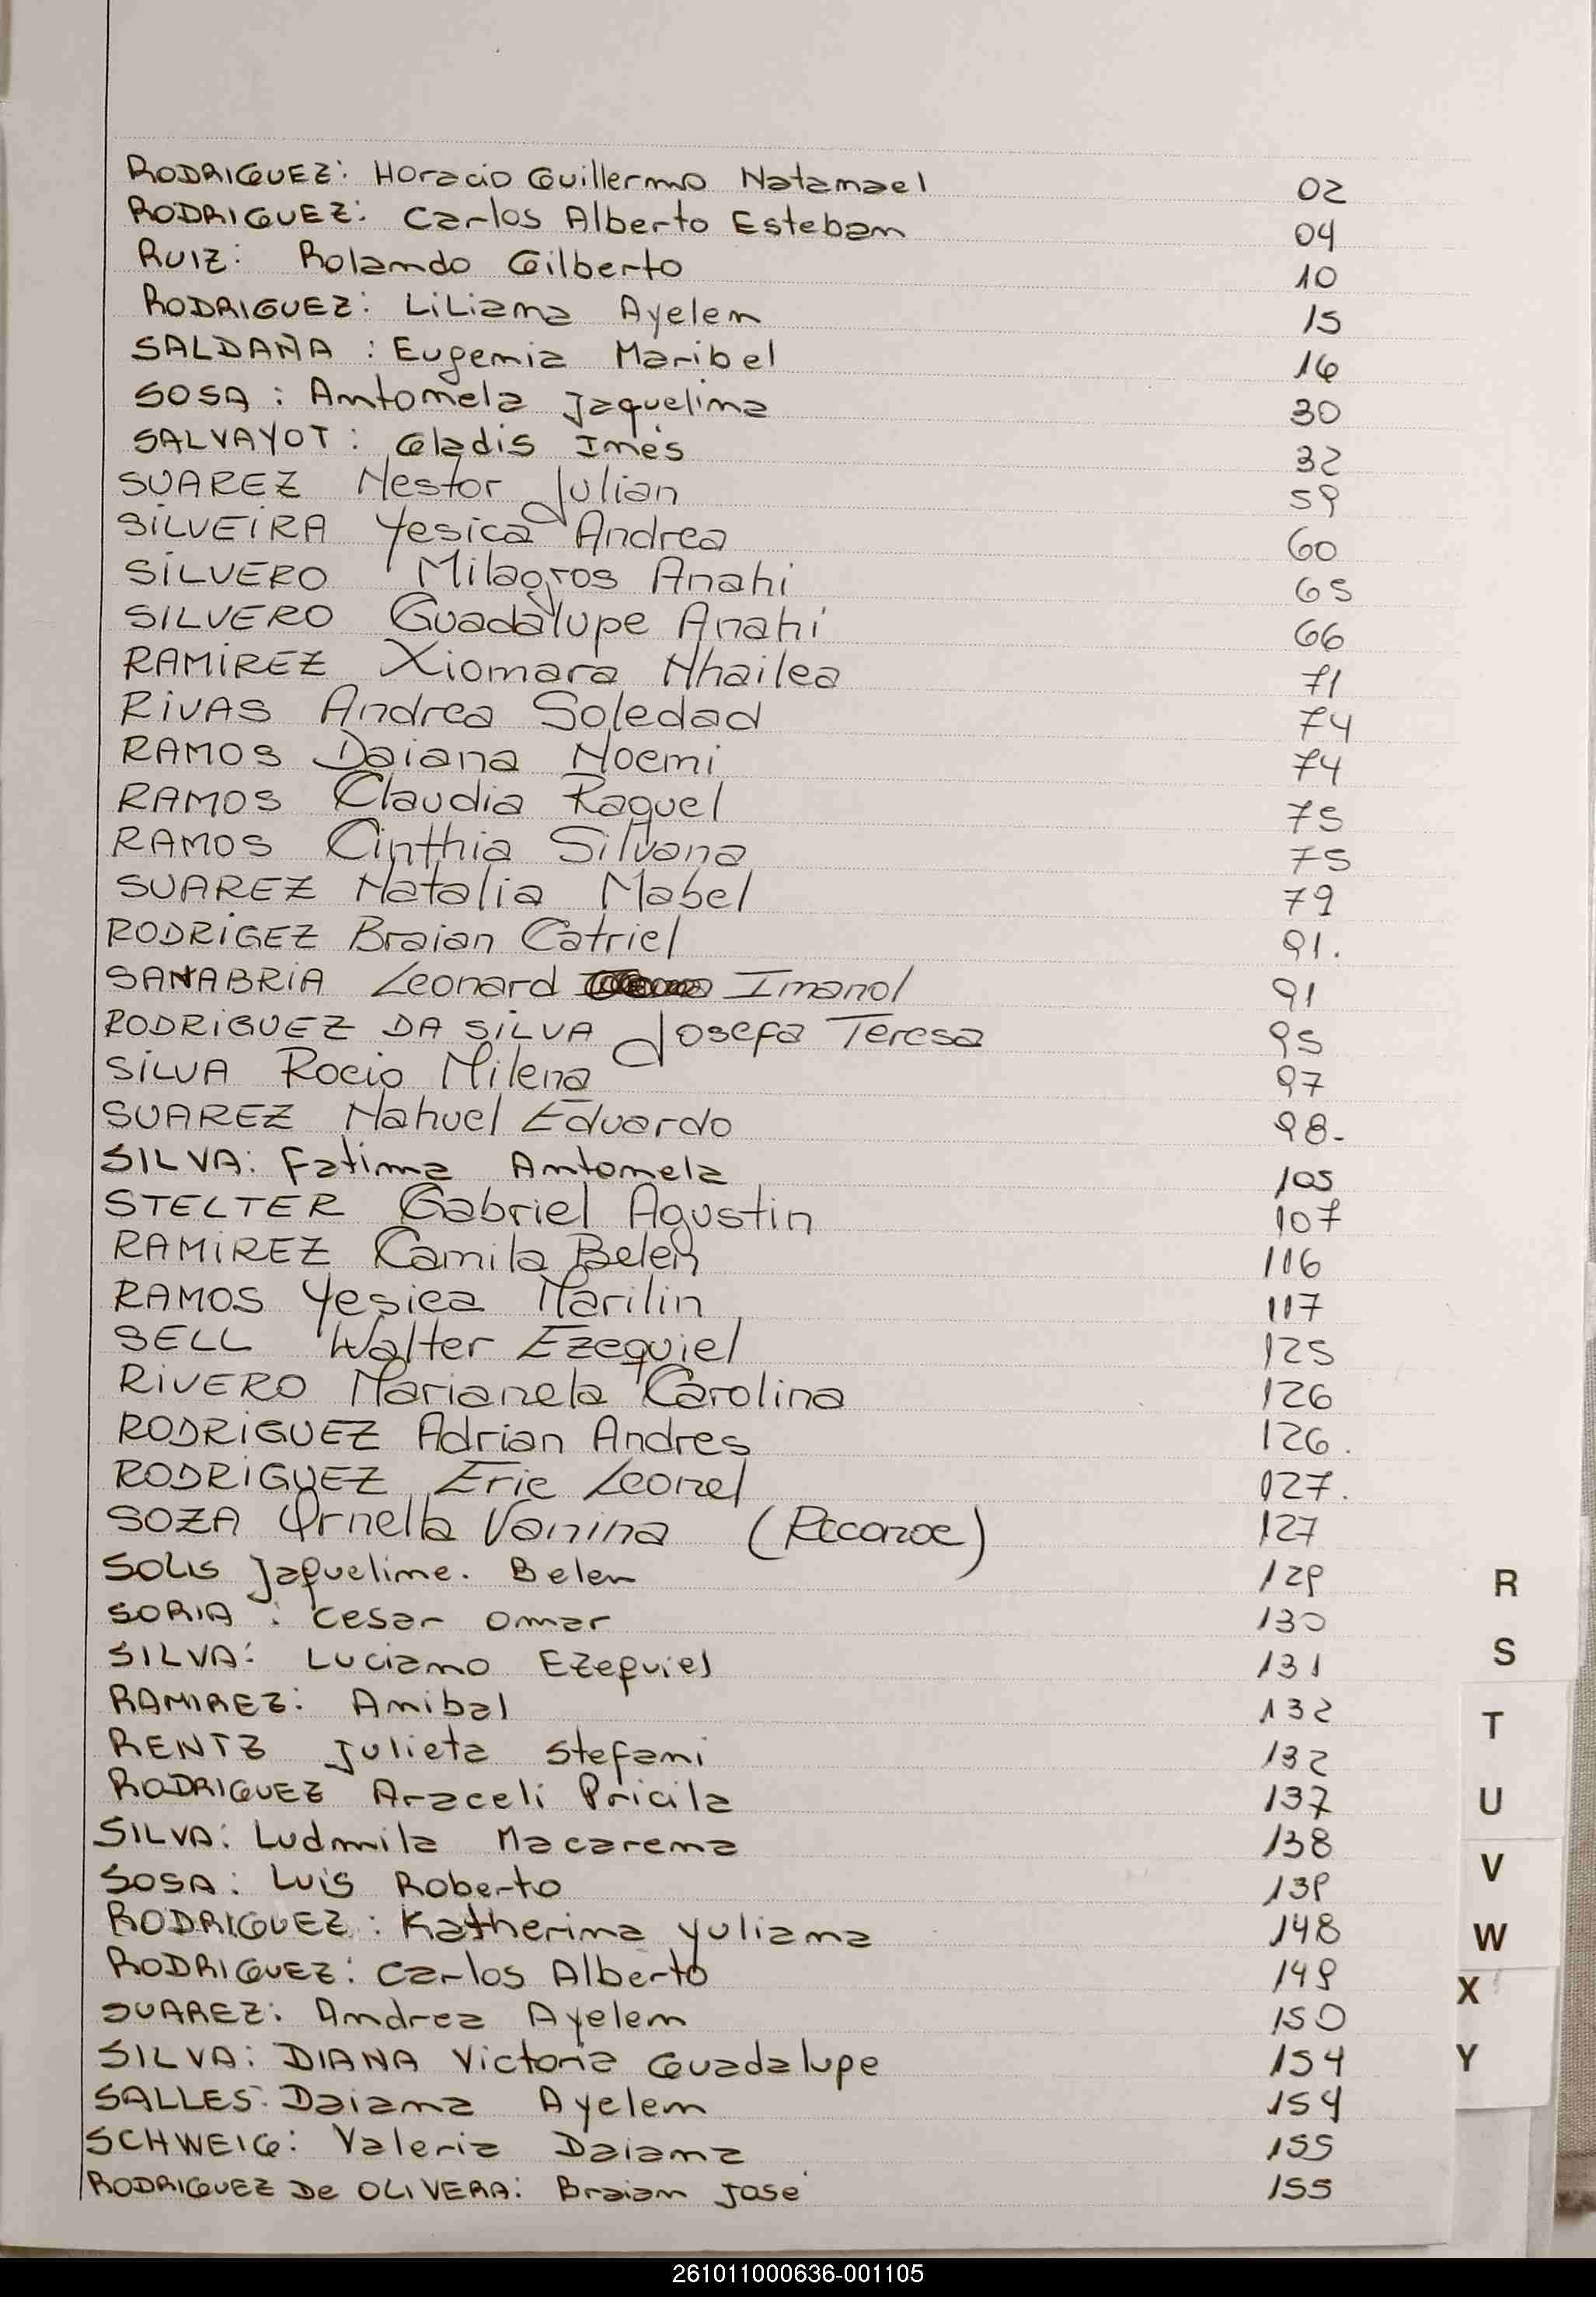 RODRIGUEZ: Horacio Guillermo Natanael 02
RODRIGUEZ: Carlos Alberto Esteban 04
RUIZ: Rolando Gilberto 10
RODRIGUEZ: LiLiana Ayelen 15
SALDAÑA : Eugenia Maribel 16
SOSA : Antonela Jaquelina 30
SALVAYOT : Gladis Inés 32
SUAREZ Nestor Julian 59
SILVEIRA Yesica Andrea 60
SILVERO Milagros Anahi 65
SILVERO Guadalupe Anahi 66
RAMIREZ Xiomara Nhailea 71
RIVAS Andrea Soledad 74
RAMOS Daiana Noemi 74
RAMOS Claudia Raquel 75
RAMOS Cinthia Silvana 75
SUAREZ Natalia Mabel 79
RODRIGEZ Braian Catriel 91.
SANABRIA Leonard Imanol 91
RODRIGUEZ DA SILVA Josefa Teresa 95
SILVA Rocio Milena 97
SUAREZ Nahuel Eduardo 98-
SILVA: Fatima Antonela 105
STELTER Gabriel Agustin 107
RAMIREZ Camila Belen 116
RAMOS Yesica Marilin 117
SELL Walter Ezequiel 125
RIVERO Marianela Carolina 126
RODRIGUEZ Adrian Andres 126.
RODRIGUEZ Eric Leonel 127.
SOZA Ornella Vanina (Reconoc) 127
SOLIS Jaqueline. Belen 129
SORIA : Cesar Omar 130
SILVA: Luciano Ezequiel 131
RAMIREZ: Anibal 132
RENTZ Julieta Stefani 132
RODRIGUEZ Araceli Pricila 137
SILVA: Ludmila Macarena 138
SOSA: Luis Roberto 139
RODRIGUEZ : Katherina Yuliana 148
RODRIGUEZ: Carlos Alberto 149
SUAREZ: Andrea Ayelen 150
SILVA: DIANA Victoria Guadalupe 154
SALLES: Daiana Ayelen 154
SCHWEIG: Valeria Daiana 155
RODRIGUEZ De OLIVERA: Braian José 155
R
S
T
U
V
W
X
Y
261011000636-001105